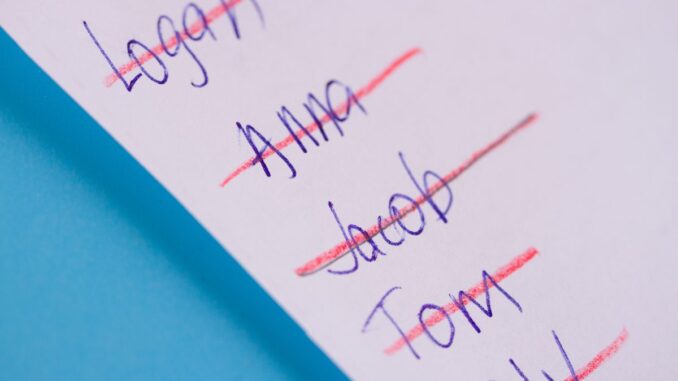 Logan
Anna
Jacob
Tom